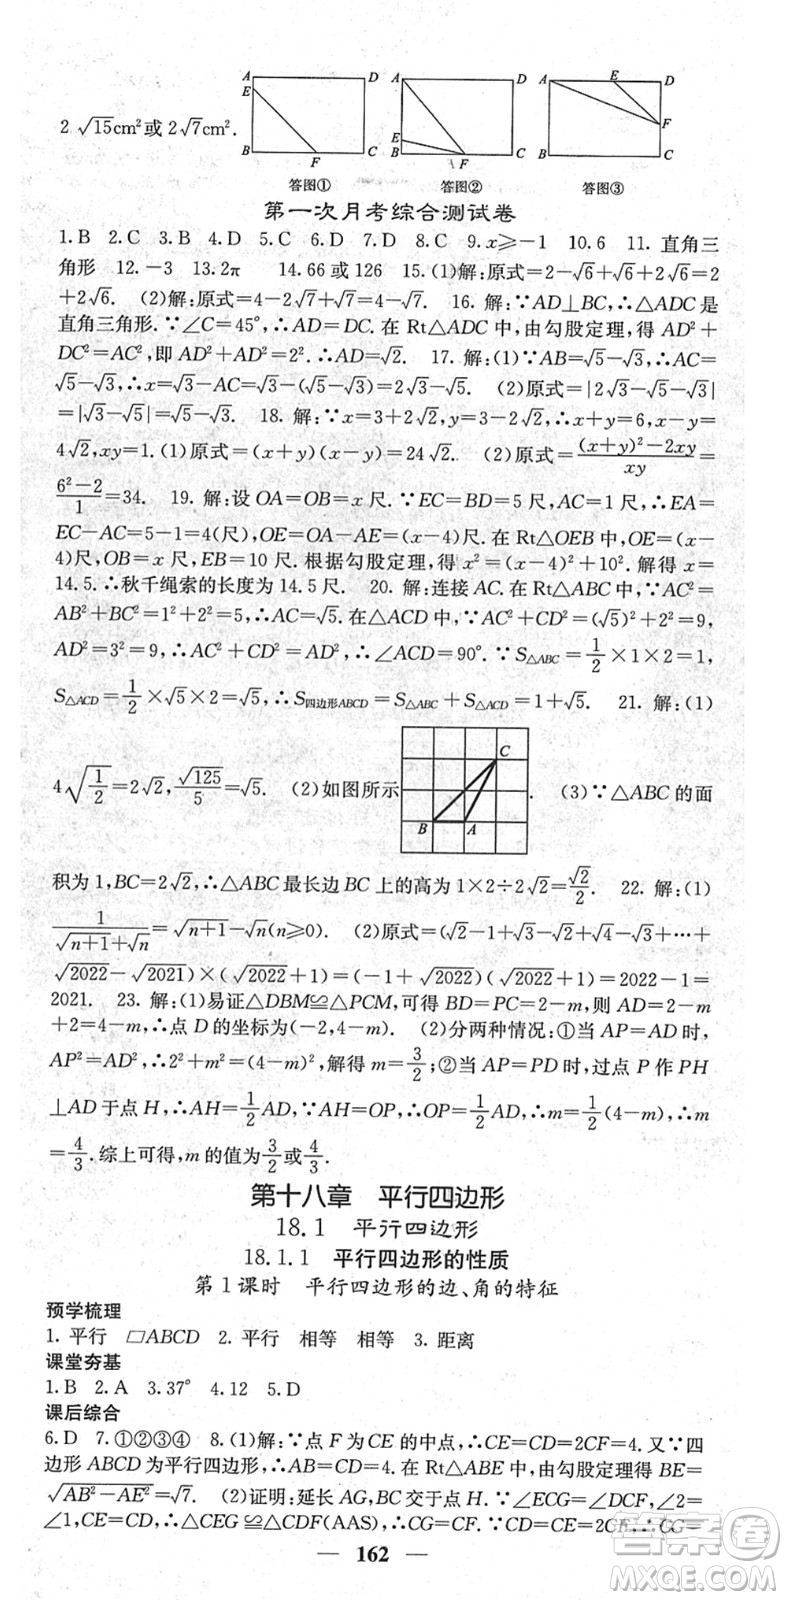 A D A D A E D
E F
2√15cm²或2√7cm².
E
B F C B F C B C
答图① 答图② 答图③
第一次月考综合测试卷
1.B 2.C 3.B 4.D 5.C 6.D 7.D 8.C 9.x⩾-1 10.6 11.直角三
角形 12.-3 13.2π 14.66或126 15.(1)解:原式=2-√6+√6+2√6=2
+2√6. (2)解:原式=4-2√7+√7=4-√7. 16.解:∵AD⊥BC,∴△ADC是
直角三角形.∵∠C=45°,∴AD=DC.在Rt△ADC中,由勾股定理,得AD²+
DC²=AC²,即AD²+AD²=2².∴AD=√2. 17.解:(1)∵AB=√5-√3,∴AC=
√5-√3,∴x=√3-AC=√3-(√5-√3)=2√3-√5. (2)原式=|2√3-√5-√3|
=|√3-√5|=√5-√3. 18.解:∵x=3+2√2,y=3-2√2,∴x+y=6,x-y=
4√2,xy=1.(1)原式=(x+y)(x-y)=24√2. (2)原式=((x+y)²-2xy)/xy=
(6²-2)/1=34. 19.解:设OA=OB=x尺.∵EC=BD=5尺,AC=1尺,∴EA=
EC-AC=5-1=4(尺),OE=OA-AE=(x-4)尺.在Rt△OEB中,OE=(x-
4)尺,OB=x尺,EB=10尺.根据勾股定理,得x²=(x-4)²+10².解得x=
14.5.∴秋千绳索的长度为14.5尺. 20.解:连接AC.在Rt△ABC中,∵AC²=
AB²+BC²=1²+2²=5,∴AC=√5.在△ACD中,∵AC²+CD²=(√5)²+2²=9,
AD²=3²=9,∴AC²+CD²=AD²,∴∠ACD=90°.∵S△ABC=1/2×1×2=1,
S△ACD=1/2×√5×2=√5,∴S四边形ABCD=S△ABC+S△ACD=1+√5. 21.解:(1)
4√(1/2)=2√2,√125/5=√5. (2)如图所示 B A C . (3)∵△ABC的面
积为1,BC=2√2,∴△ABC最长边BC上的高为1×2÷2√2=√2/2. 22.解:(1)
1/(√(n+1)+√n)=√(n+1)-√n(n⩾0). (2)原式=(√2-1+√3-√2+√4-√3+⋯+
√2022-√2021)×(√2022+1)=(-1+√2022)(√2022+1)=2022-1=
2021. 23.解:(1)易证△DBM≌△PCM,可得BD=PC=2-m,则AD=2-m
+2=4-m,∴点D的坐标为(-2,4-m). (2)分两种情况:①当AP=AD时,
AP²=AD²,∴2²+m²=(4-m)²,解得m=3/2;②当AP=PD时,过点P作PH
⊥AD于点H,∴AH=1/2AD,∵AH=OP,∴OP=1/2AD,∴m=1/2(4-m),∴m
=4/3.综上可得,m的值为3/2或4/3.
第十八章 平行四边形
18.1 平行四边形
18.1.1 平行四边形的性质
第1课时 平行四边形的边、角的特征
预学梳理
1.平行 ▱ABCD 2.平行 相等 相等 3.距离
课堂夯基
1.B 2.A 3.37° 4.12 5.D
课后综合
6.D 7.①②③④ 8.(1)解:∵点F为CE的中点,∴CE=CD=2CF=4.又∵四
边形ABCD为平行四边形,∴AB=CD=4.在Rt△ABE中,由勾股定理,得BE=
√(AB²-AE²)=√7. (2)证明:延长AG,BC交于点H.∵∠ECG=∠DCF,∠2=
∠1,CE=CD,∴△CEG≌△CDF(AAS),∴CG=CF.∵CE=CD=2CF,∴CG=
162
答案圈
MXQE.COM